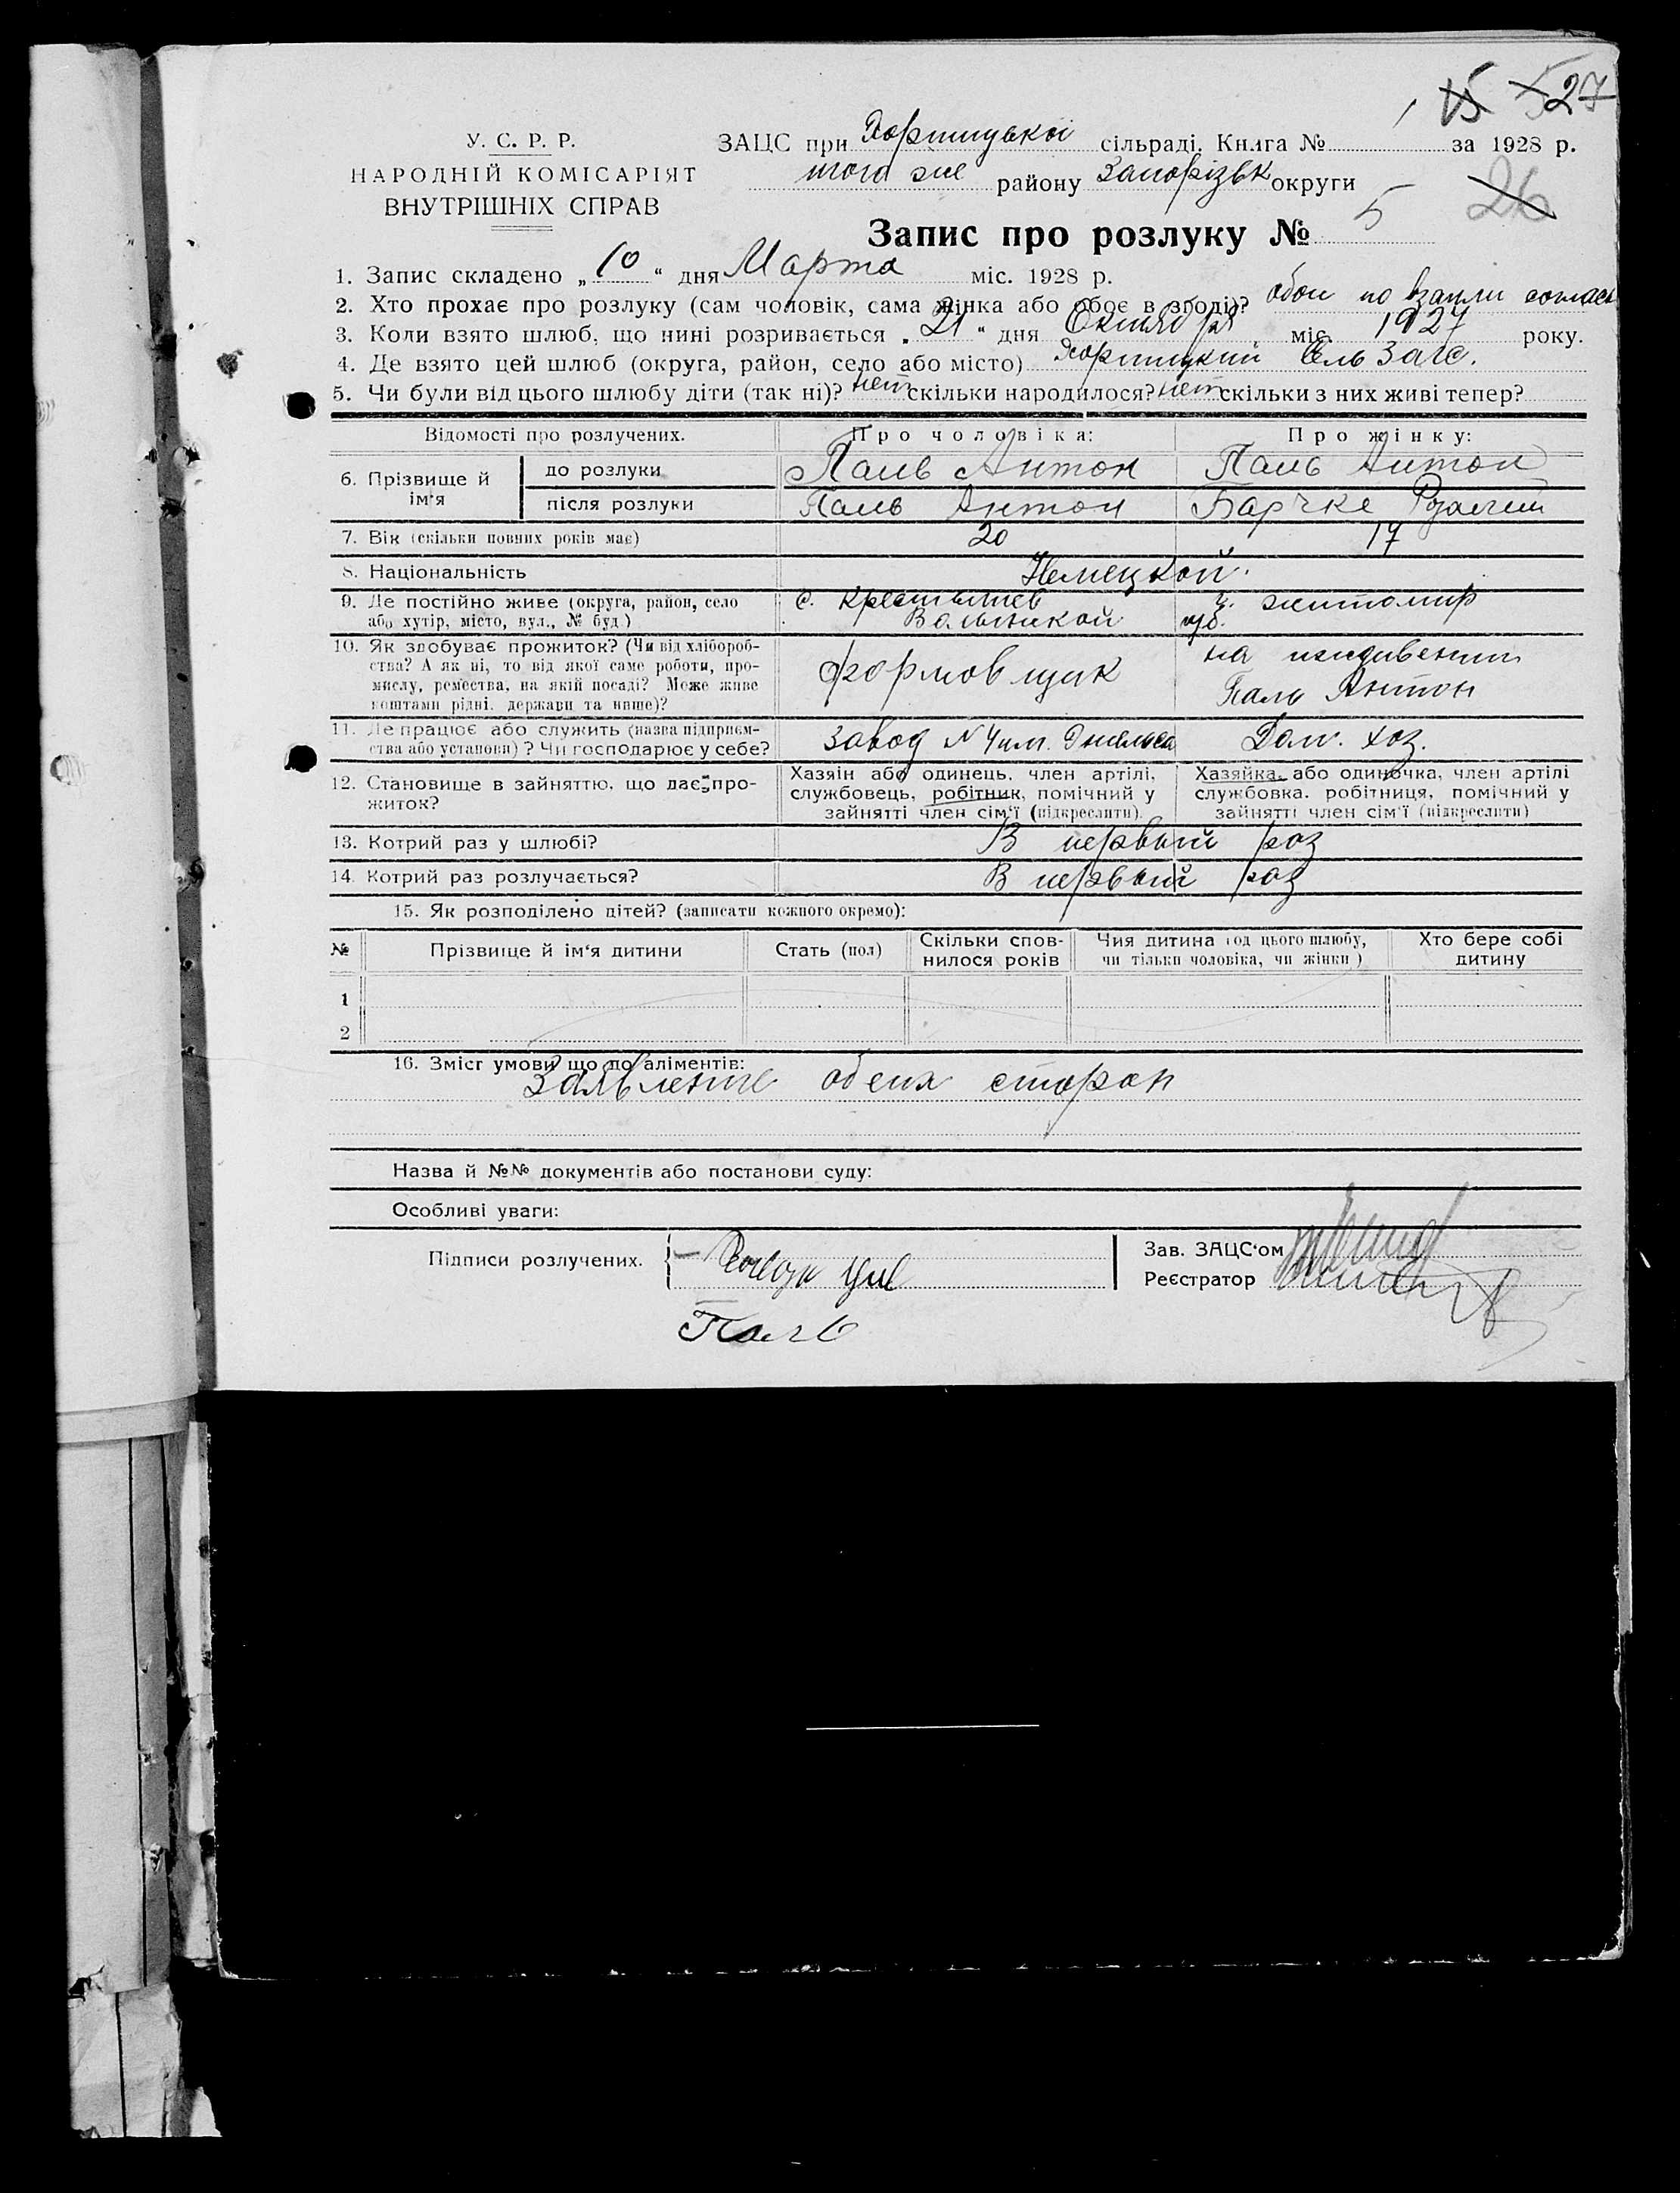 15 5 27
У. С. Р. Р.
НАРОДНІЙ КОМІСАРІЯТ
ВНУТРІШНІХ СПРАВ
ЗАЦС при Хортицької сільраді. Книга № 1 за 1928 р.
того же району Запорізьк округи
26
Запис про розлуку № 5
1. Запис складено „10“ дня Марта міс. 1928 р.
2. Хто прохає про розлуку (сам чоловік, сама жінка або обоє в згоді)? обои по взаимн согласи
3. Коли взято шлюб, що нині розривається „21“ дня Октября міс. 1927 року.
4. Де взято цей шлюб (округа, район, село або місто) Хортицкий Сель Загс.
5. Чи були від цього шлюбу діти (так ні)? нет скільки народилося? нет скільки з них живі тепер?
Відомості про розлучених. Про чоловіка: Про жінку:
6. Прізвище й ім‘я до розлуки Паль Антон Паль Антон
після розлуки Паль Антон Барчке Розалии
7. Вік (скільки повних років має) 20 17
8. Національність Немецкой.
9. Де постійно живе (округа, район, село с. г. житомир
або хутір, місто, вул., № буд.) Волынской губ.
10. Як здобуває прожиток? (Чи від хлібороб-
ства? А як ні, то від якої саме роботи, про-
мислу, ремества, на якій посаді? Може живе
коштами рідні, держави та инше)?
формовщик
на иждивении
Паль Антон
11. Де працює або служить (назва підприєм-
ства або установи)? Чи господарює у себе?
завод N 4 им. Энгельса Дом. хоз.
12. Становище в зайняттю, що дає про-
житок?
Хазяін або одинець, член артілі,
службовець, робітник, помічний у
зайнятті член сім‘ї (підкреслити).
Хазяйка або одиночка, член артілі
службовка, робітниця, помічний у
зайнятті член сім‘ї (підкреслити)
13. Котрий раз у шлюбі? В первый раз
14. Котрий раз розлучається? В первый раз
15. Як розподілено дітей? (записати кожного окремо):
№ Прізвище й ім‘я дитини Стать (пол) Скільки спов-
нилося років Чия дитина (од цього шлюбу,
чи тільки чоловіка, чи жінки) Хто бере собі
дитину
1
2
16. Зміст умови що до аліментів:
Заявление обеих сторон
Назва й №№ документів або постанови суду:
Особливі уваги:
Підписи розлучених.
Зав. ЗАЦС‘ом
Реєстратор
Паль